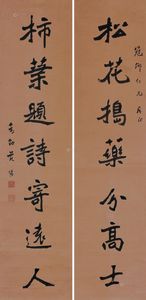 松花搗藥分高士
柿葉題詩寄遠人